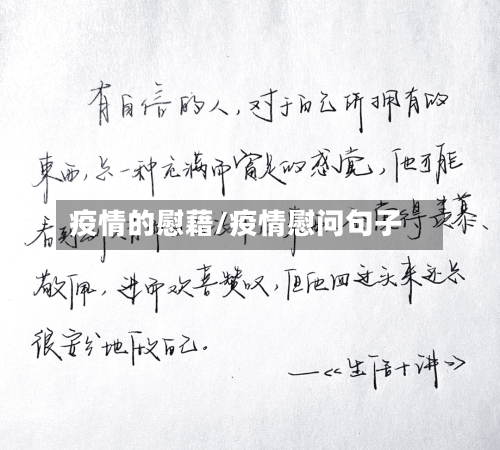 有自信的人,对于自己所拥有的
東西,是一种充满而富足的感觉,他可能
看到
疫情的慰藉/疫情慰问句子
得羡慕、
敬佩,进而欢喜赞叹,但他回过头来还是
很安分地做自己。
——《生活十讲》